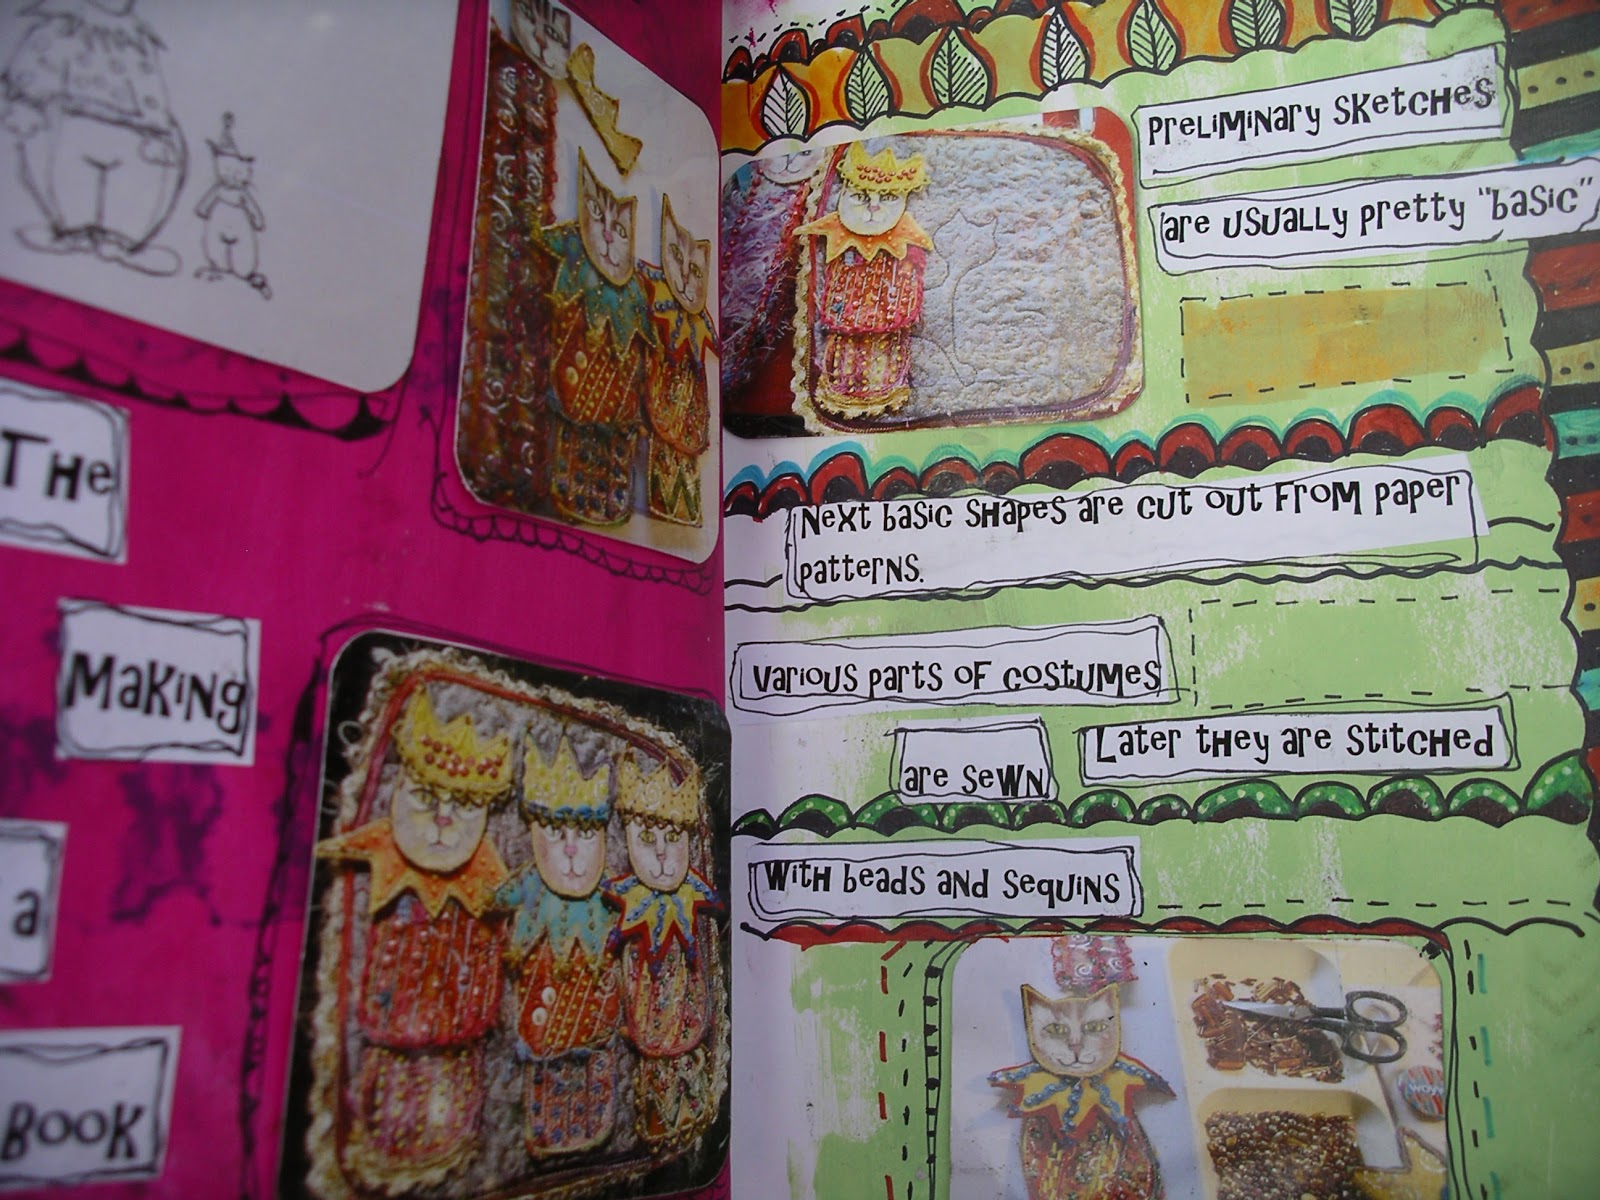 THe
MaKiNg
a
BOOK
PreLiMiNary SKetCHes
are usuaLLy pretty "basic"
Next basic SHapes are cut out From paper
patterns.
Various parts OF costuMes
are sewN
Later tHey are Stitched
WitH beads and sequiNs